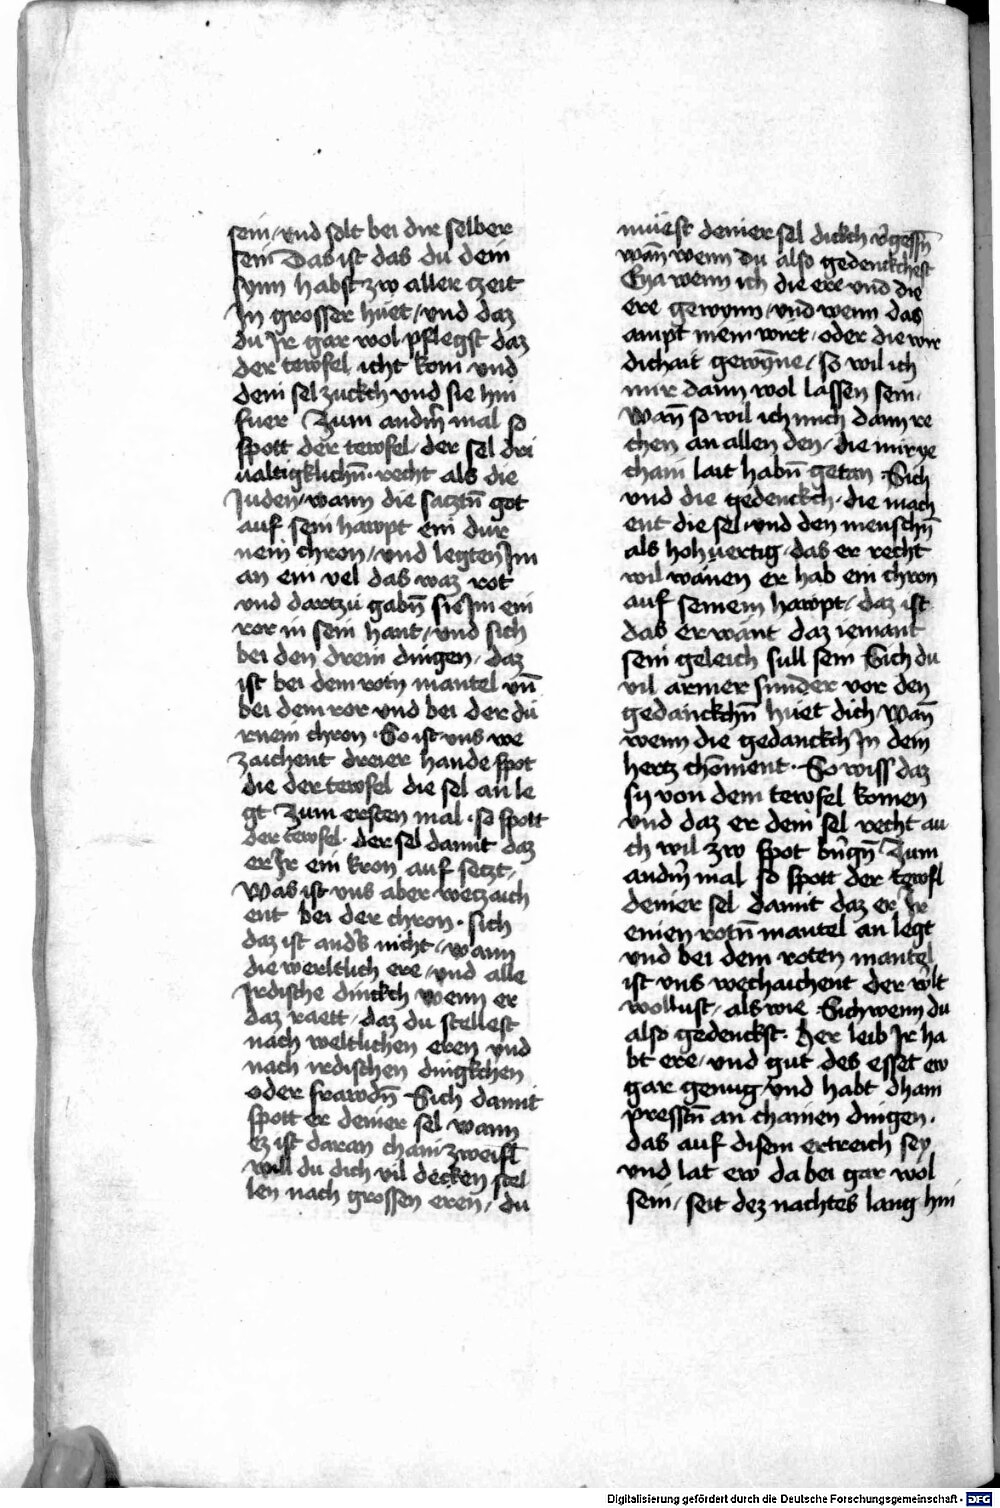 sein / und solt bei dir selber
sein Das ist das du dein
synn habst zw aller czeit
In grosser huet / und daz
du Ir gar wol pflegst daz
der tewfel icht kom und
dein sel zuckch und sie hin
fuer Zum andm̄ mal so
spott der tewfel der sel dri
ualtigklichn̄ recht als die
Juden / wann die saczt n̄ got
auf sein hawpt ein dur
nein chron / und legten Im
an ein vel das waz rot
und dartzu gabn̄ sie Im ein
ror in sein hant / und sich
bei den drein dingen / daz
ist bei dem rotn mantel vn̄
bei dem ror und bei der du
rnem chron · So ist uns we
zaichent dreier hande spot
die der tewfel die sel an le
gt Zum ersten mal · so spott
der tewfel · der sel damit daz
er Ir ein kron auf seczt /
Was ist uns aber weczaich
ent bei der chron · sich
daz ist anders nicht / wann
die werltlich ere / und alle
Irdische dinckch wenn er
daz raett / daz du stellest
nach weltlichen eren und
nach irdischen dingkchen
oder frawdn̄ Sich damit
spott er deiner sel wann
ez ist daran chain zweifl
will du dich vil decken stel
len nach grossen eren / du
müest deiner sel dickch v̄gessn̄
wan̄ wenn du also gedenckchest
Eya wenn ich die ere und die
ere gewynn / und wenn das
ampt mein wirt / oder die wir
dichait gewȳne / so wil ich
mir dann wol lassen sein.
Wan̄ so wil ich mich dann re
chen an allen den / die mir ye
chain lait habn̄ getan · Sich
und die gedenckch · die mach
ent die sel und den menschn̄
als hohuertig / das er recht
wil wänen er hab ein chron
auf seinem hawpt / daz ist
das er want daz iemant
sein geleich sull sein Sich du
vil armer sunder vor den
gedanckchn̄ huet dich / wan̄
wenn die gedanckch In dein
hertz choment · So wiss daz
sy von dem tewfel komen
und daz er dem sel recht au
ch wil zw spot bringn̄ Zum
andm̄ mal so spott der tewfl
deiner sel damit daz er Ir
einen rotn̄ mantel an legt
und bei dem roten mantel
ist uns wechaichent der w̄lt
wollust / als wie · Sich wenn du
also gedenckst · her leib Ir ha
bt ere / und gut des esset ew
gar genug / und habt dhain
presstn̄ an chainen dingen ·
das auf disem ertreich sey
und lat ew da bei gar wol
sein / seit dez nachtes lang hin
Digitalisierung gefördert durch die Deutsche Forschungsgemeinschaft - DFG